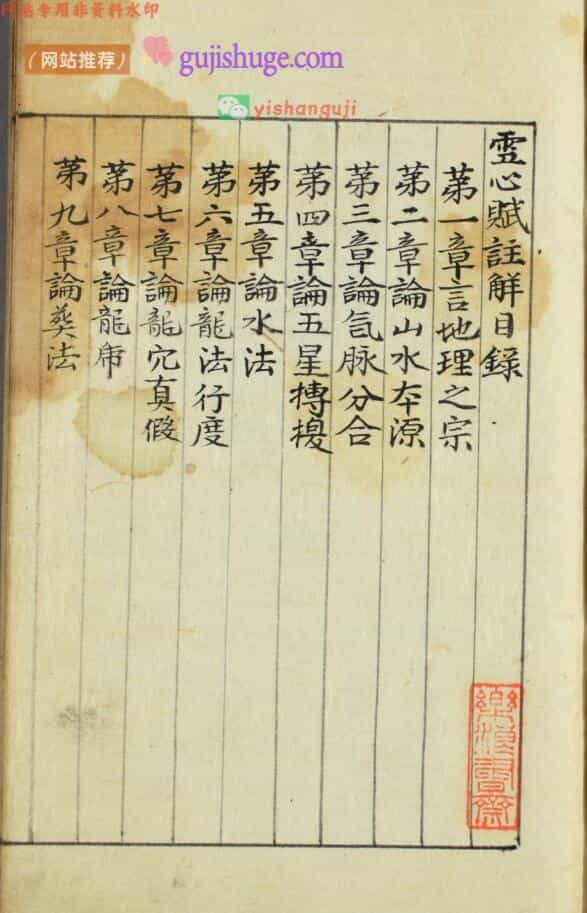 网站专用非资料水印
（网站推荐）
gujishuge.com
yishanguji
雪心賦註解目錄
第一章言地理之宗
第二章論山水夲源
第三章論氣脉分合
第四章論五星摶
第五章論水法
第六章論龍法行度
第七章論龍穴真假
第八章論龍
第九章論葬法